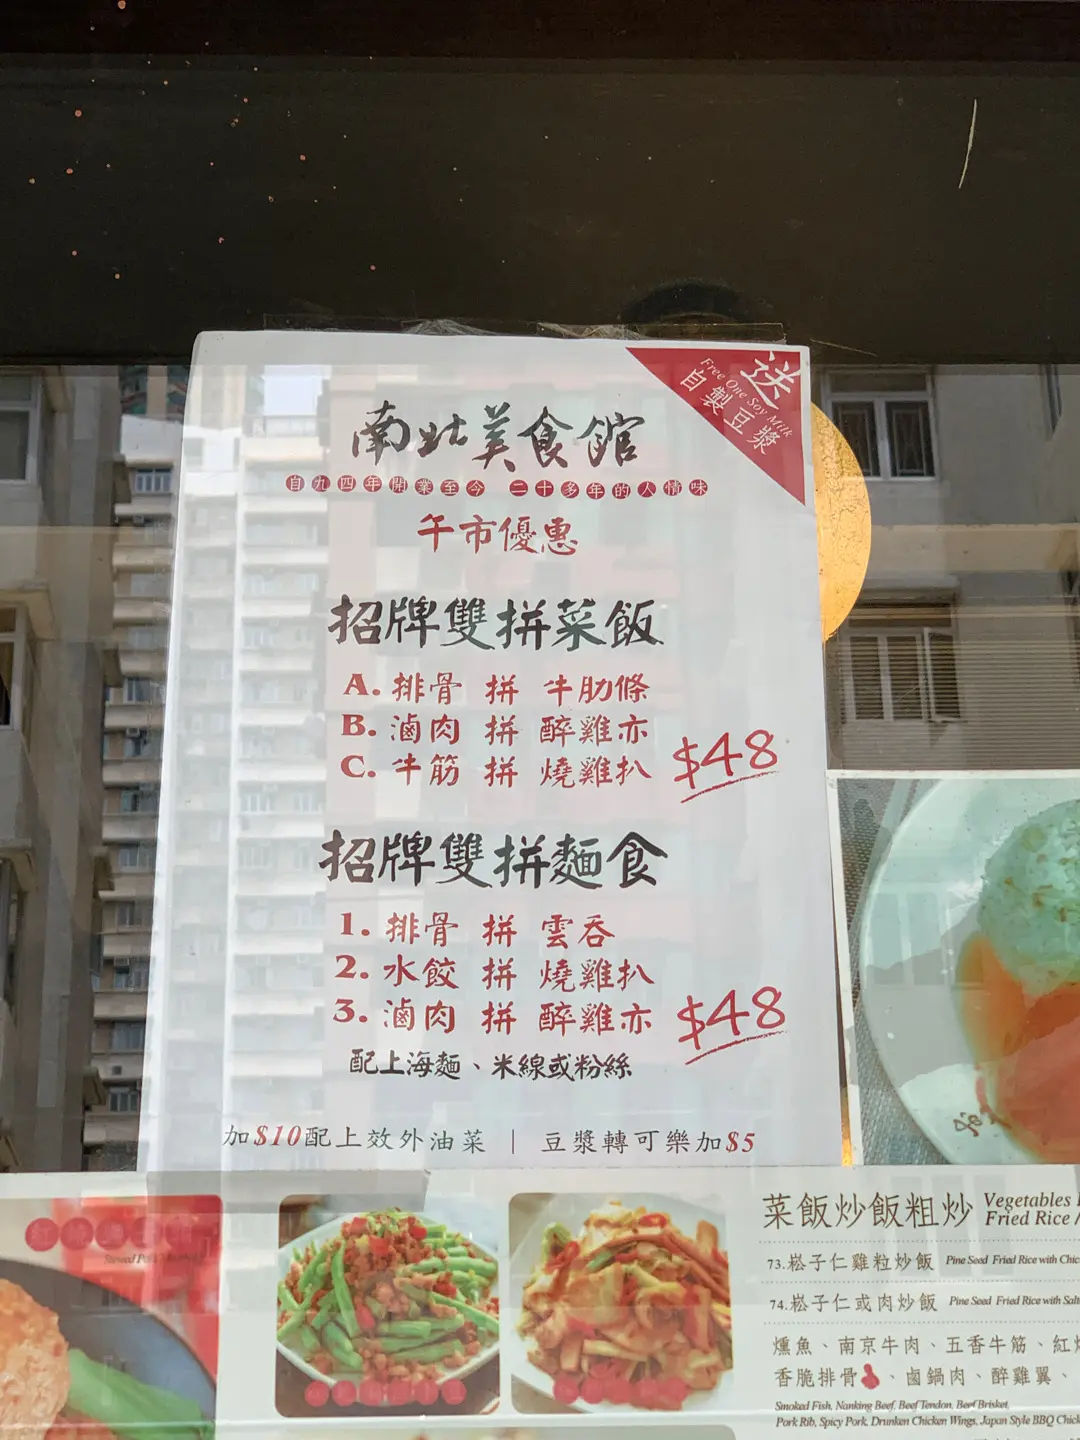 送
Free One Soy Milk
自製豆漿
南北美食館
自九四年開業至今 二十多年的人情味
午市優惠
招牌雙拼菜飯
A. 排骨 拼 牛肋條
B. 滷肉 拼 醉雞亦
C. 牛筋 拼 燒雞扒
$48
招牌雙拼麵食
1. 排骨 拼 雲吞
2. 水餃 拼 燒雞扒
3. 滷肉 拼 醉雞亦
$48
配上海麵、米線或粉絲
加$10配上效外油菜 | 豆漿轉可樂加$5
菜飯炒飯粗炒
Vegetables
Fried Rice /
73.崧子仁雞粒炒飯 Pine Seed Fried Rice with Chic
74.崧子仁或肉炒飯 Pine Seed Fried Rice with Salt
燻魚、南京牛肉、五香牛筋、紅
香脆排骨、鹵鍋肉、醉雞翼、
Smoked Fish, Nanking Beef, Beef Tendon, Beef Brisket,
Pork Rib, Spicy Pork, Drunken Chicken Wings, Japan Style BBQ Chick